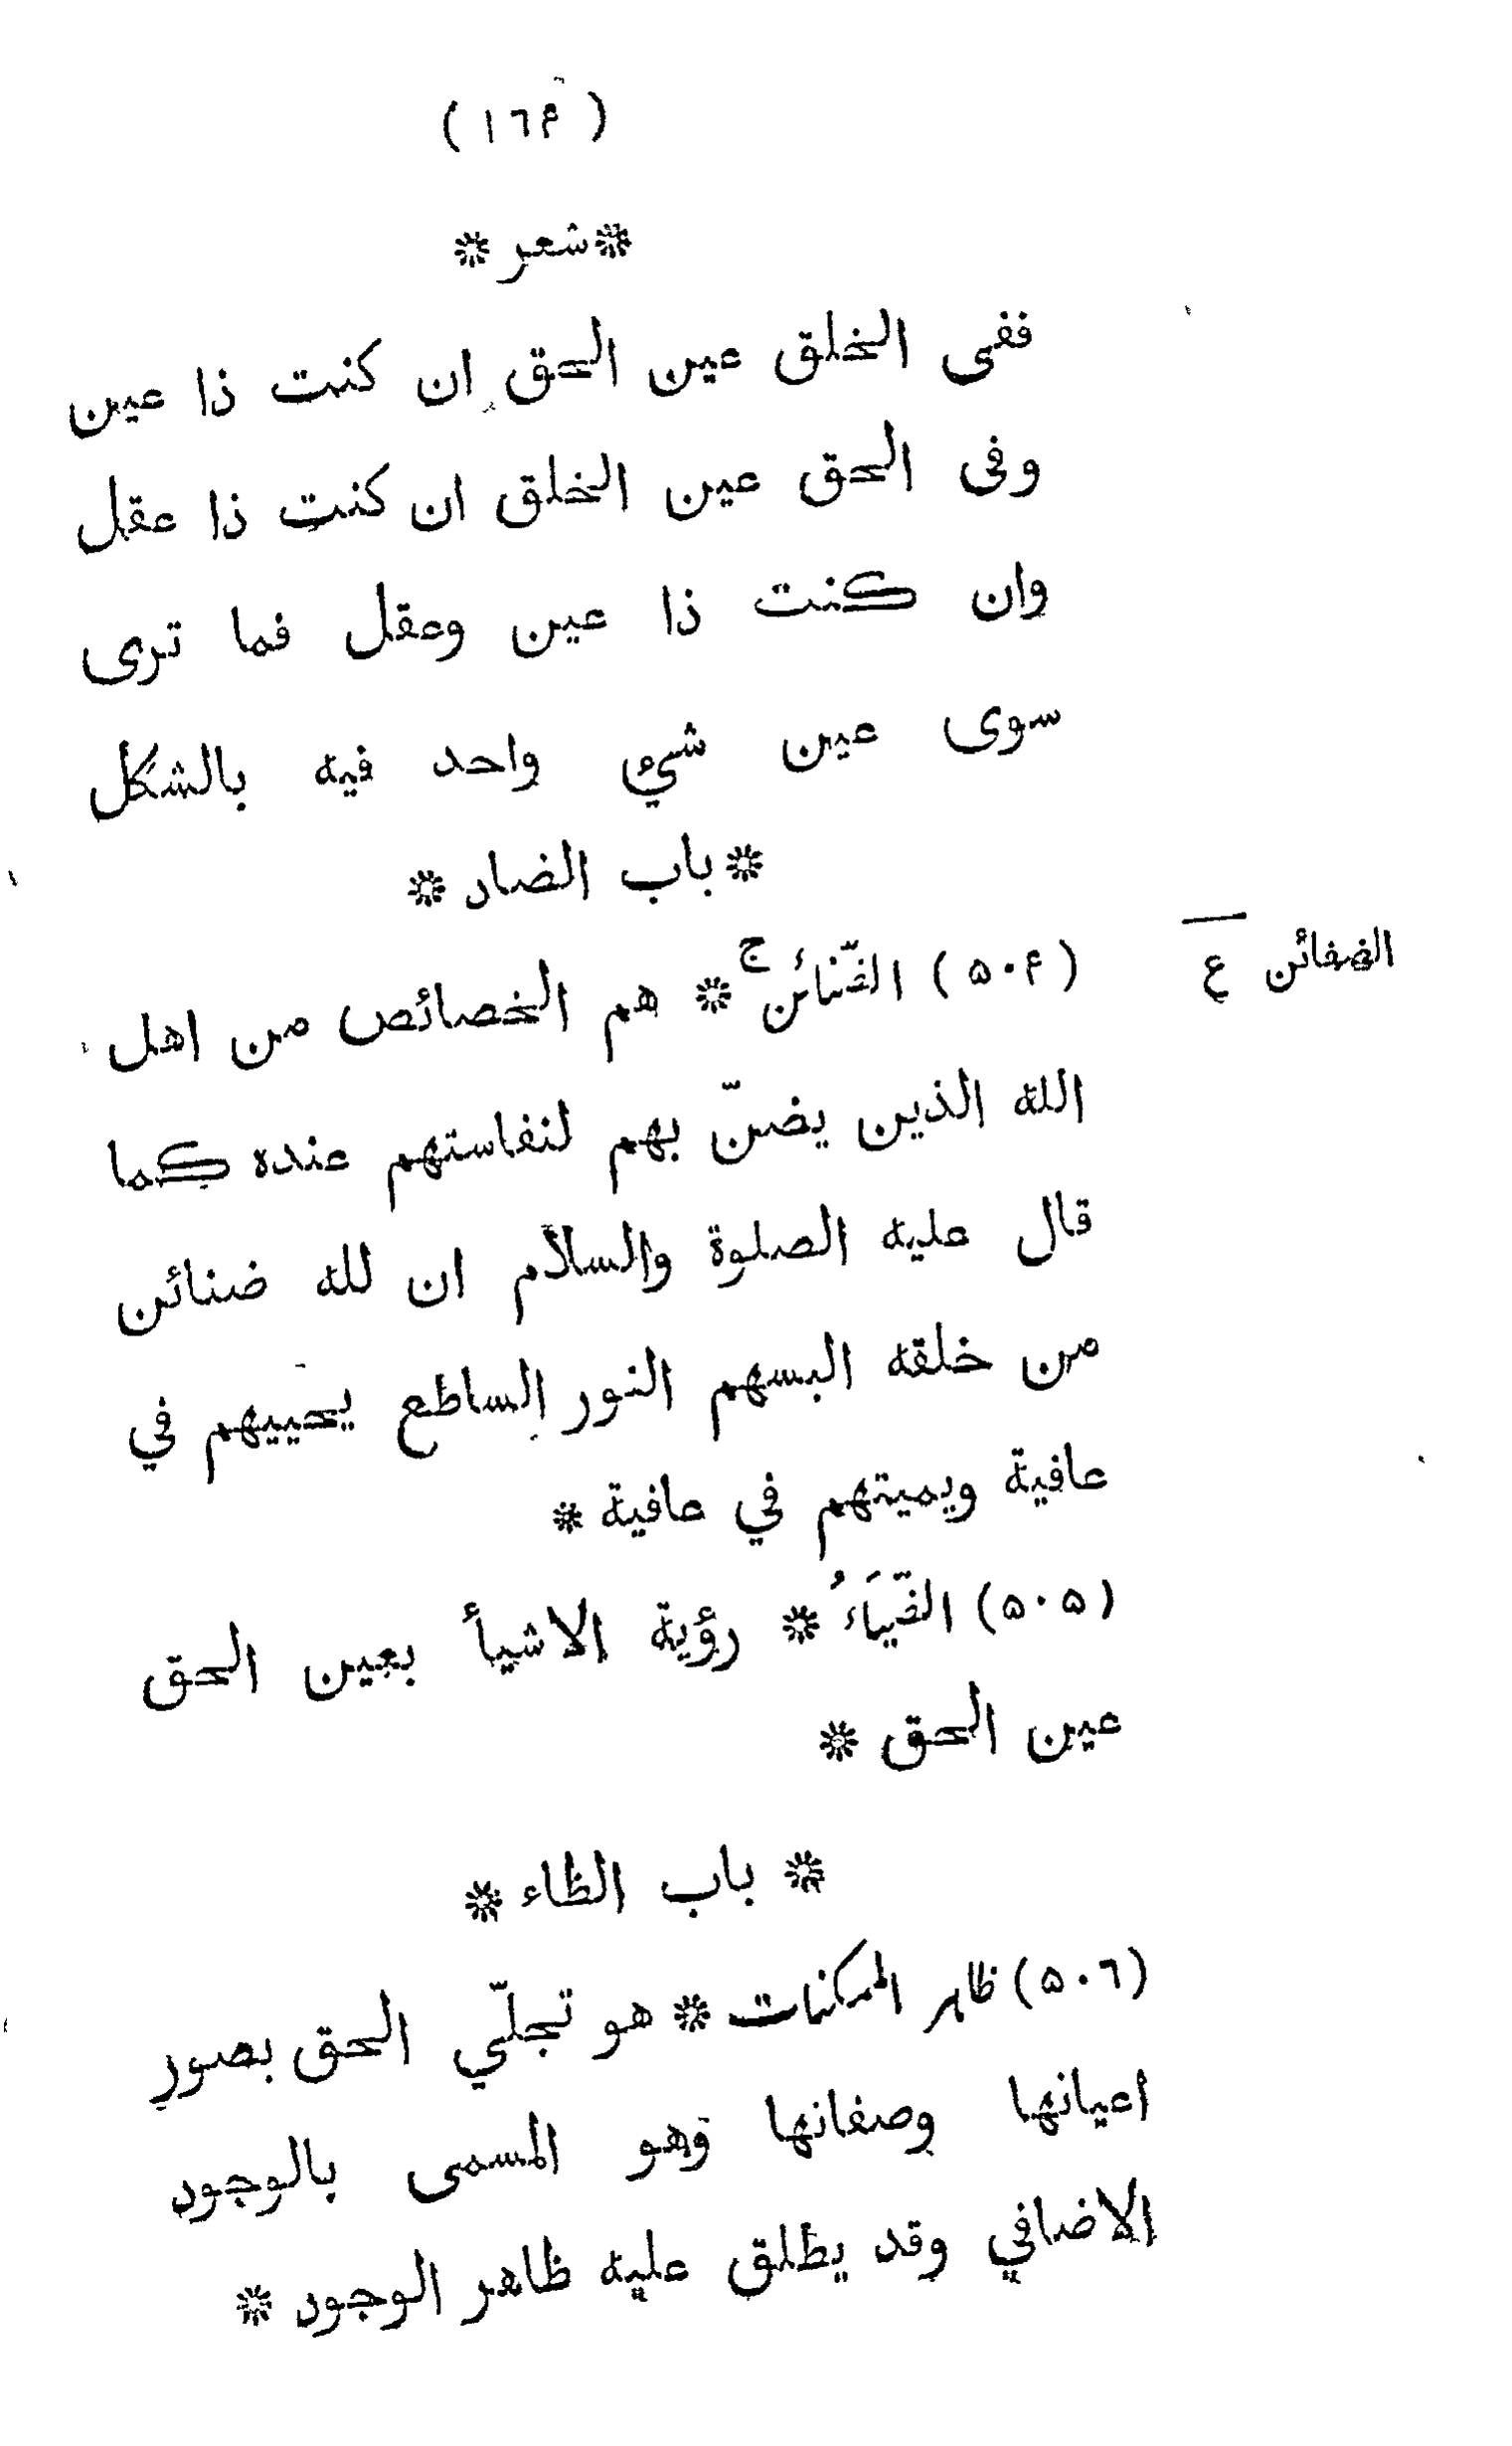 (١٦۴)
* شعر *
ففى الخلق عين الحق ان كنت ذا عين
وفى الحق عين الخلق ان كنت ذا عقل
وان كنت ذا عين وعقل فما ترى
سوى عين شيء واحد فيه بالشكل
* باب الضاد *
(۵۰۴) الضّنائن ج * هم الخصائص من اهل
الضفائن ع
الله الذين يضنّ بهم لنفاستهم عنده كما
قال عليه الصلوة والسلام ان لله ضنائن
من خلقه البسهم النور الساطع يحييهم في
عافية ويميتهم في عافية *
(۵۰۵) الضّيَاءُ * رؤية الاشيأ بعين الحق
عين الحق *
* باب الظاء *
(۵۰٦) ظاهر الممكنات * هو تجلّي الحق بصور
اعيانها وصفاتها وهو المسمى بالوجود
الاضافي وقد يطلق عليه ظاهر الوجود *